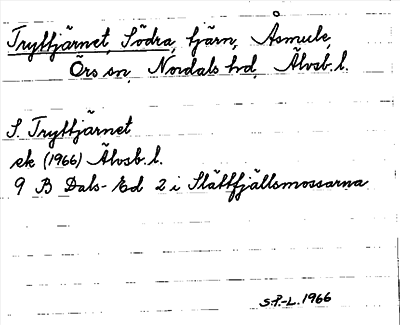 Tryttjärnet, Södra, tjärn, Åsmule,
Örs sn, Nordals hd, Älvsb. l.
S. Tryttjärnet
ek (1966) Älvsb. l.
9 B Dals-Ed 2 i Slättfjällsmossarna
S.P.-L. 1966